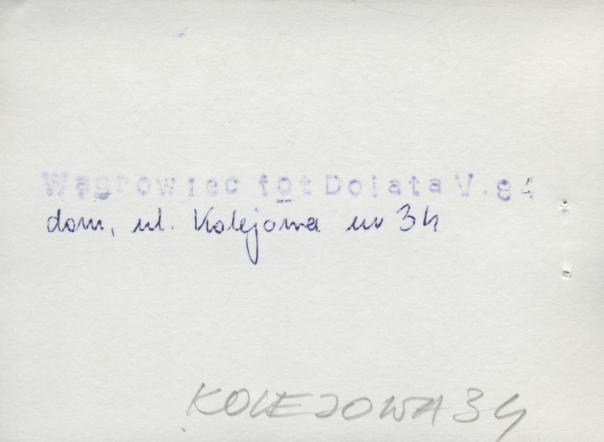 Wągrowiec fot Dolata V.84
dom, ul. Kolejowa nr 34
KOLEJOWA 34